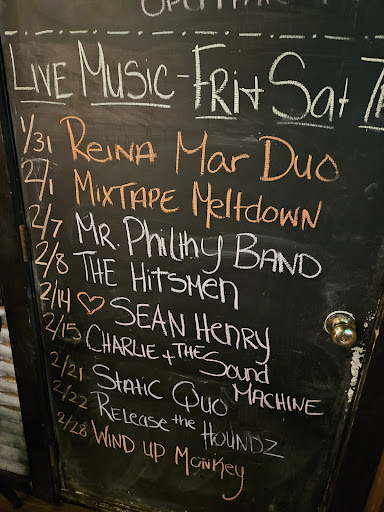 LIVE MUSIC - FRI + SAT
1/31 REINA MAR DUO
2/1 MIXTAPE MELTDOWN
2/7 MR. PHILTHY BAND
2/8 THE HITSMEN
2/14 ♡ SEAN HENRY
2/15 CHARLIE + THE SOUND MACHINE
2/21 STATIC QUO
2/22 RELEASE THE HOUNDZ
2/28 WIND UP MONKEY